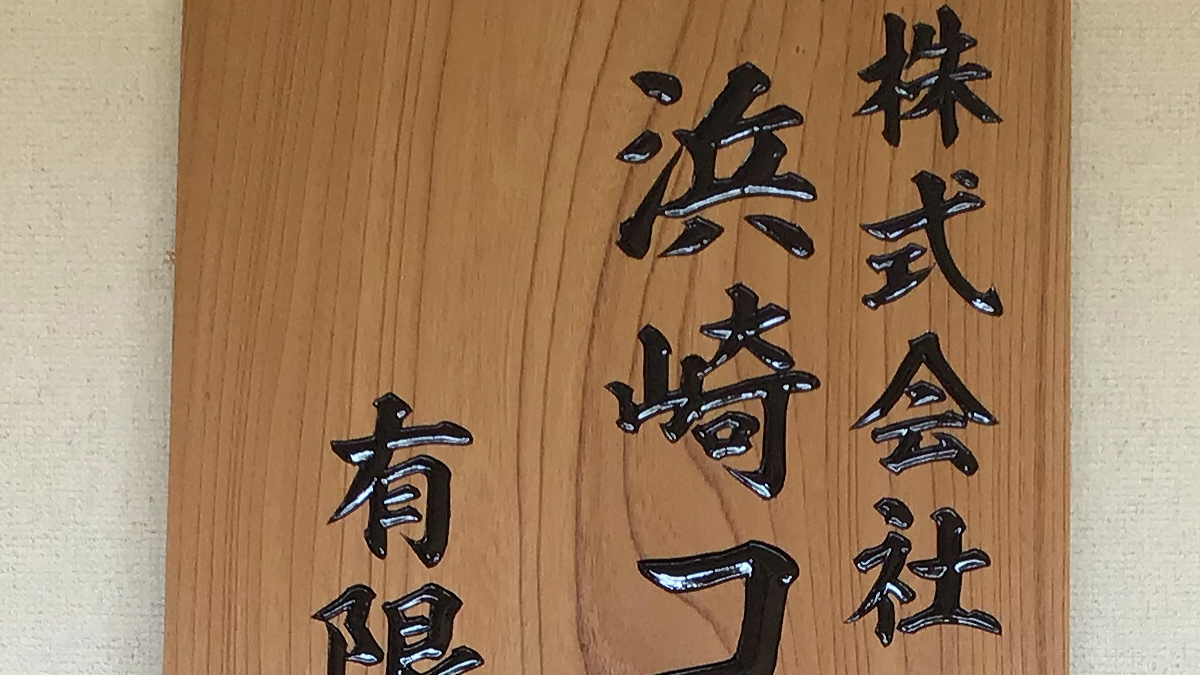 株式会社
浜崎コ
有限